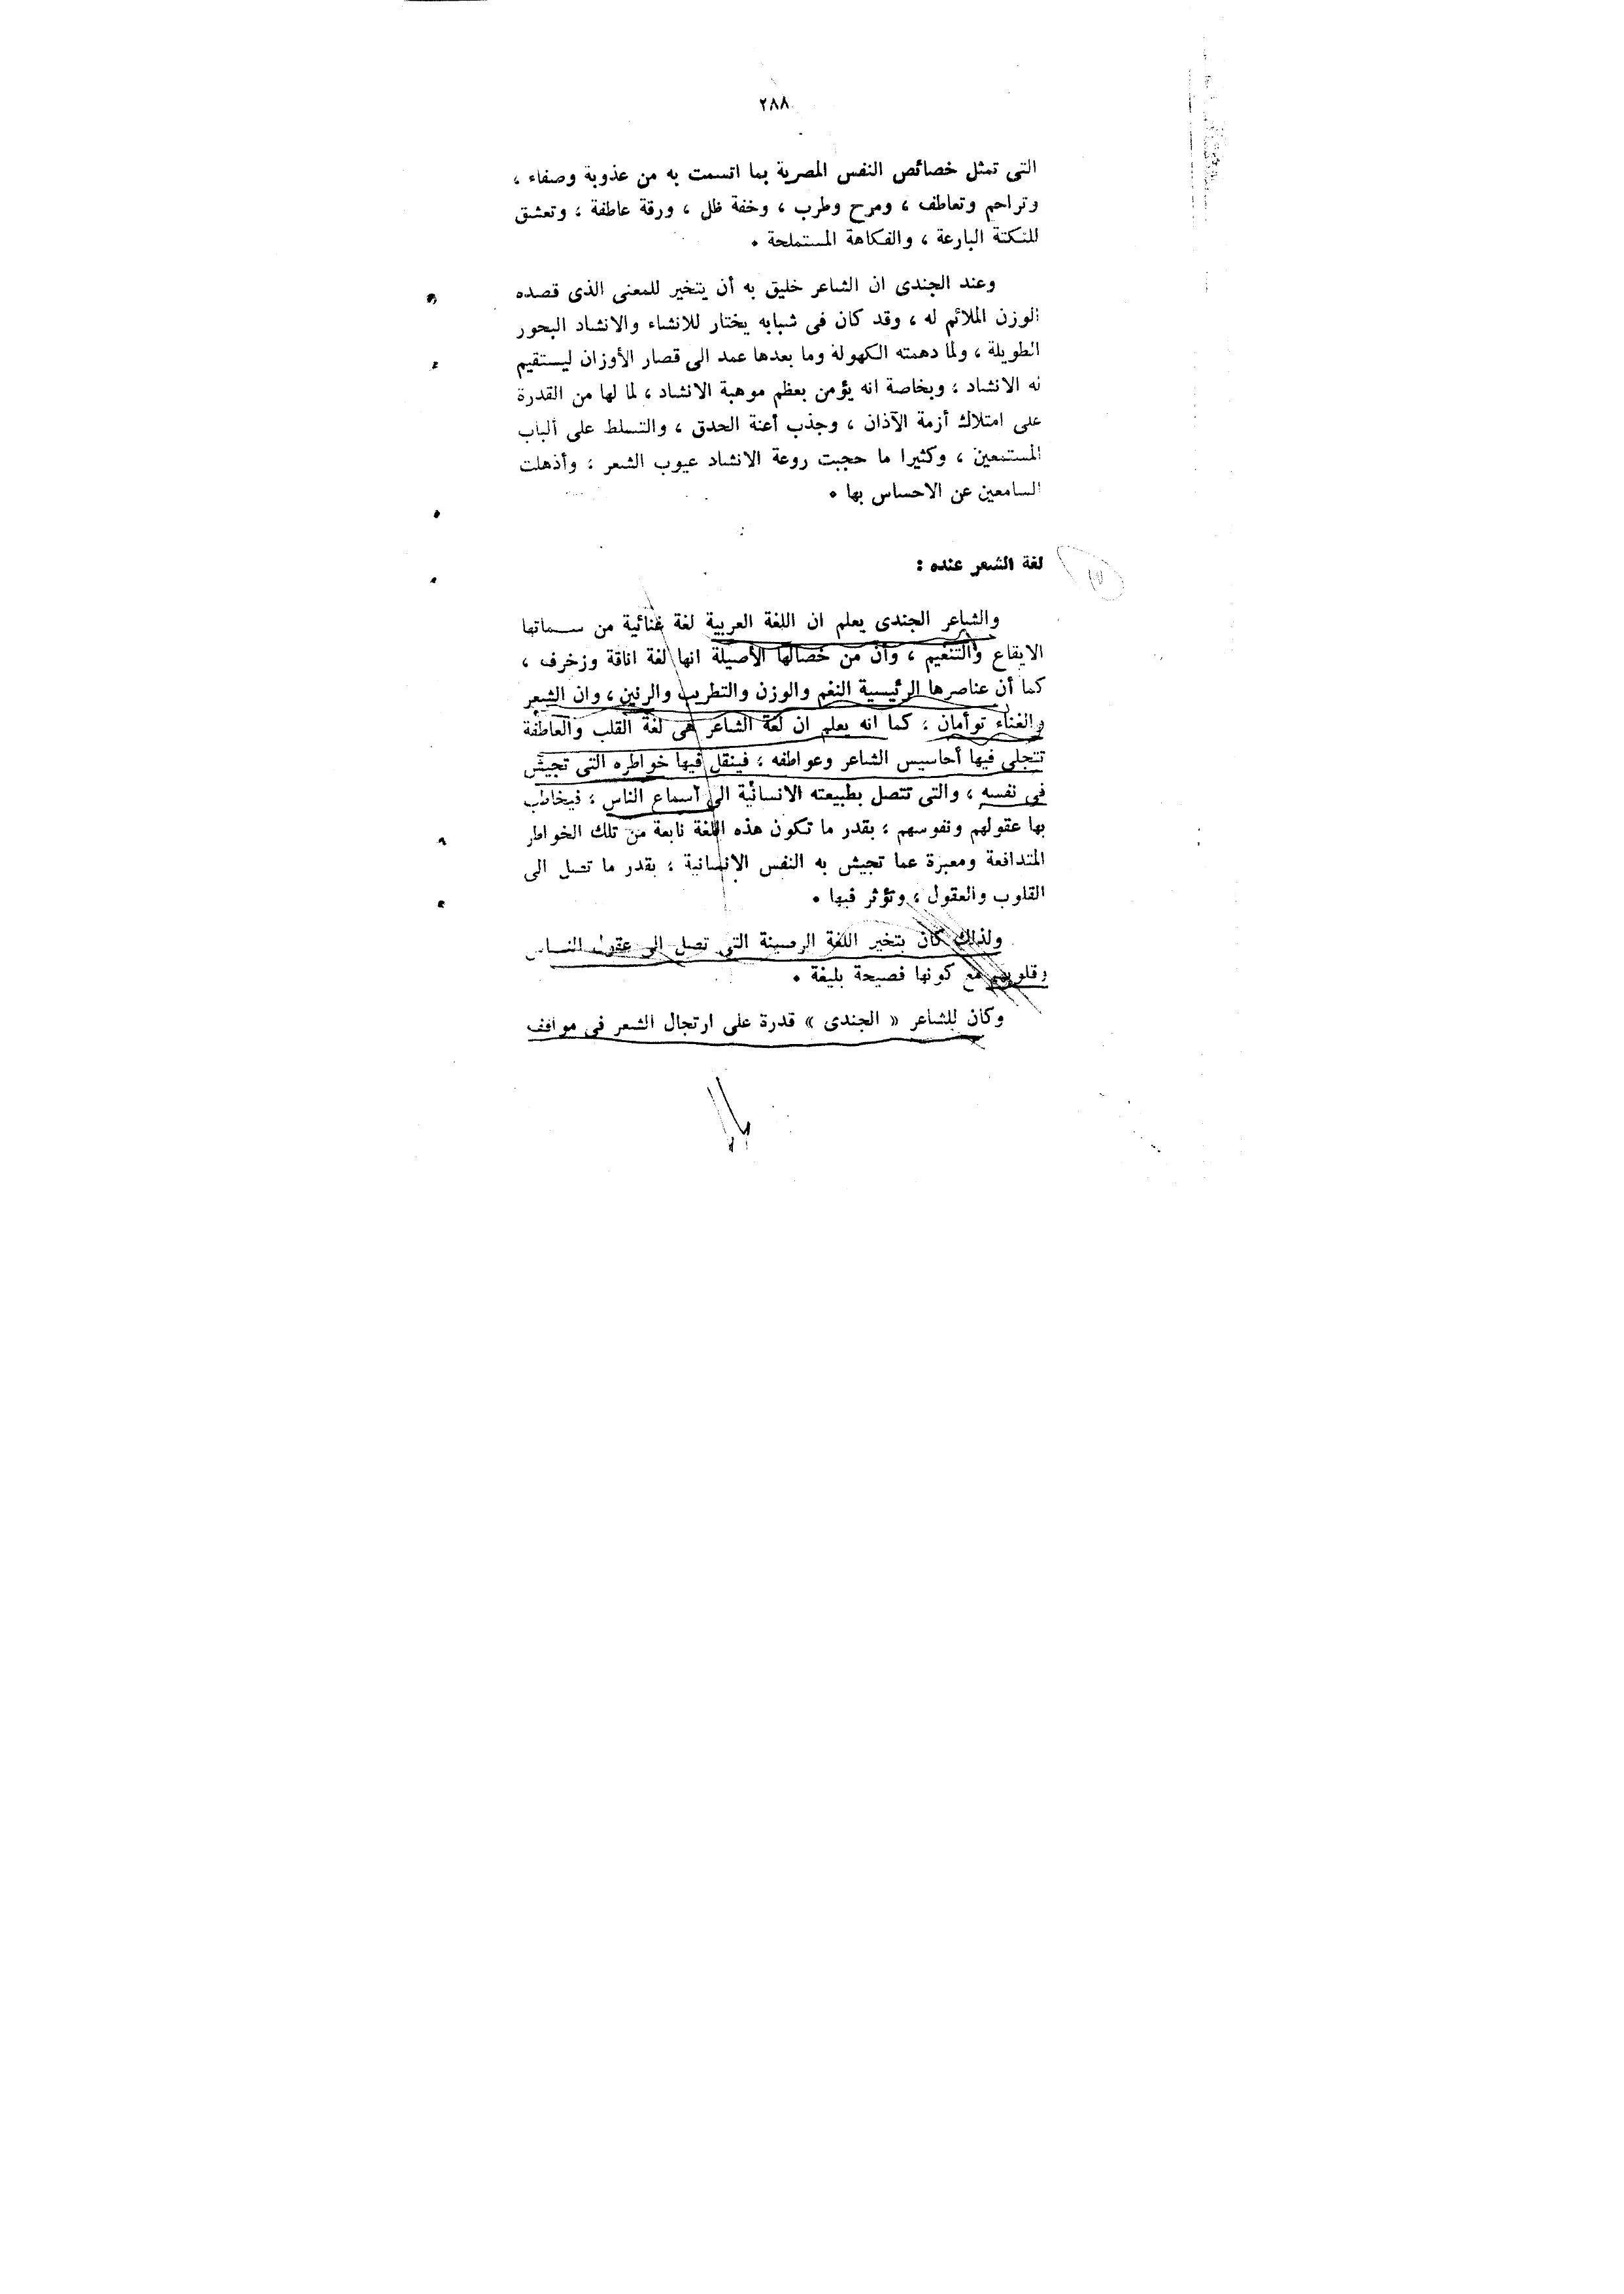 ٢٨٨
التى تمثل خصائص النفس المصرية بما اتسمت به من عذوبة وصفاء ،
وتراحم وتعاطف ، ومرح وطرب ، وخفة ظل ، ورقة عاطفة ، وتعشق
للنكتة البارعة ، والفكاهة المستملحة •
وعند الجندى ان الشاعر خليق به أن يتخير للمعنى الذى قصده
الوزن الملائم له ، وقد كان فى شبابه يختار للانشاء والانشاد البحور
الطويلة ، ولما دهمته الكهولة وما بعدها عمد الى قصار الأوزان ليستقيم
له الانشاد ، وبخاصة انه يؤمن بعظم موهبة الانشاد ، لما لها من القدرة
على امتلاك أزمة الآذان ، وجذب أعنة الحدق ، والتسلط على ألباب
المستمعين ، وكثيرا ما حجبت روعة الانشاد عيوب الشعر ، وأذهلت
السامعين عن الاحساس بها •
لغة الشعر عنده :
والشاعر الجندى يعلم ان اللغة العربية لغة غنائية من سماتها
الايقاع والتنغيم ، وأن من خصالها الأصيلة انها لغة اناقة وزخرف ،
كما أن عناصرها الرئيسية النغم والوزن والتطريب والرنين ، وان الشعر
والغناء توأمان ، كما انه يعلم ان لغة الشاعر هى لغة القلب والعاطفة
تتجلى فيها أحاسيس الشاعر وعواطفه ، فينقل فيها خواطره التى تجيش
فى نفسه ، والتى تتصل بطبيعته الانسانية الى أسماع الناس ، فيخاطب
بها عقولهم ونفوسهم ، بقدر ما تكون هذه اللغة نابعة من تلك الخواطر
المتدافعة ومعبرة عما تجيش به النفس الانسانية ، بقدر ما تصل الى
القلوب والعقول ، وتؤثر فيها •
ولذلك كان يتخير اللغة الرصينة التى تصل الى عقول الناس
وقلوبهم مع كونها فصيحة بليغة •
وكان للشاعر « الجندى » قدرة على ارتجال الشعر فى مواقف